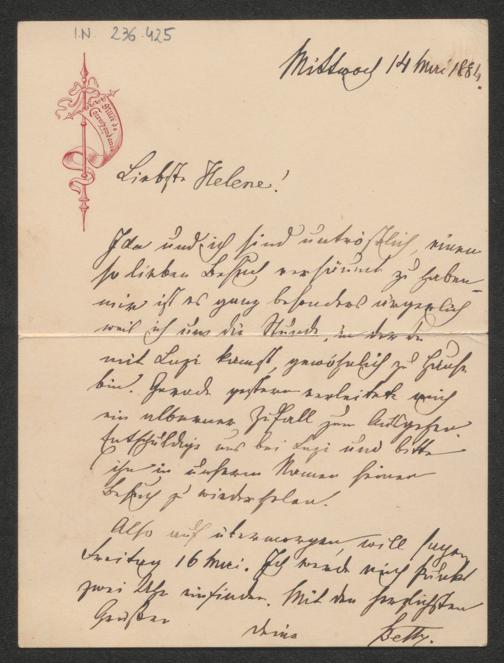 I.N. 236.425
Billet de
Correspondance
Mittwoch 14 Mai 1884.
Liebste Helene!
Ida und ich sind untröstlich, einen
so lieben Besuch versäumt zu haben
mir ist es ganz besonders ärgerlich
weil ich um die Stunde, in der du
mit Luzi kamst, gewöhnlich zu Hause
bin. Gerade gestern verleitete mich
ein alberner Zufall zum Ausgehen.
Entschuldige uns bei Luzi und bitte
ihn in unserm Namen seinen
Besuch zu wiederholen.
Also auf übermorgen will sagen
Freitag 16 Mai. Ich werde mich Punkt
zwei Uhr einfinden. Mit den herzlichsten
Grüßen
deine Betty.